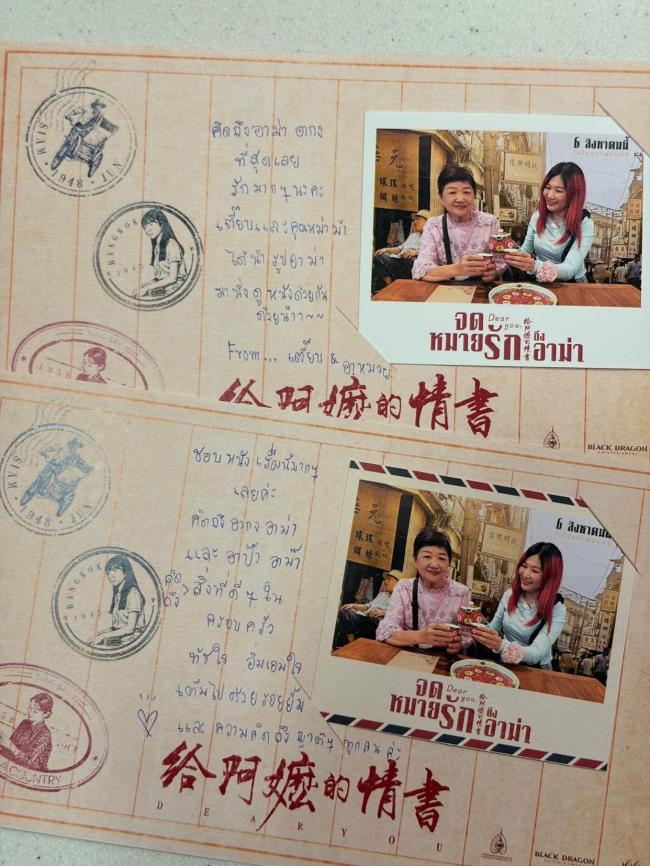 SIAM
1948 - JUN
BANGKOK
1942
1958
คิดถึงอาม่า อากง
ที่สุดเลย
รักมากๆนะคะ
เตี๊ยบและคุณหม่าม้า
ได้นำรูปอาม่า
มานั่งดูหนังด้วยกัน
ด้วยน้าา~~
From... เตี๊ยบ & อาหมวย
6 สิงหาคมนี้
ในโรงภาพยนตร์
จดหมายรักถึงอาม่า
Dear you,
给阿嬷的情書
给阿嬷的情書
BLACK DRAGON
ENTERTAINMENT
SIAM
1948 - JUN
BANGKOK
1942
COUNTRY
ชอบหนังเรื่องนี้มากๆ
เลยค่ะ
คิดถึงอากง อาม่า
และ อาป๊า อาม๊า
คิดถึง > สิ่งที่ดีๆ ใน
ครอบครัว
ทัชใจ อิ่มเอมใจ
เต็มไปด้วยรอยยิ้ม
และ ความคิดถึง ญาติๆ ทุกคน ค่ะ
6 สิงหาคมนี้
ในโรงภาพยนตร์
จดหมายรักถึงอาม่า
Dear you,
给阿嬷的情書
给阿嬷的情書
DEAR YOU
BLACK DRAGON
ENTERTAINMENT